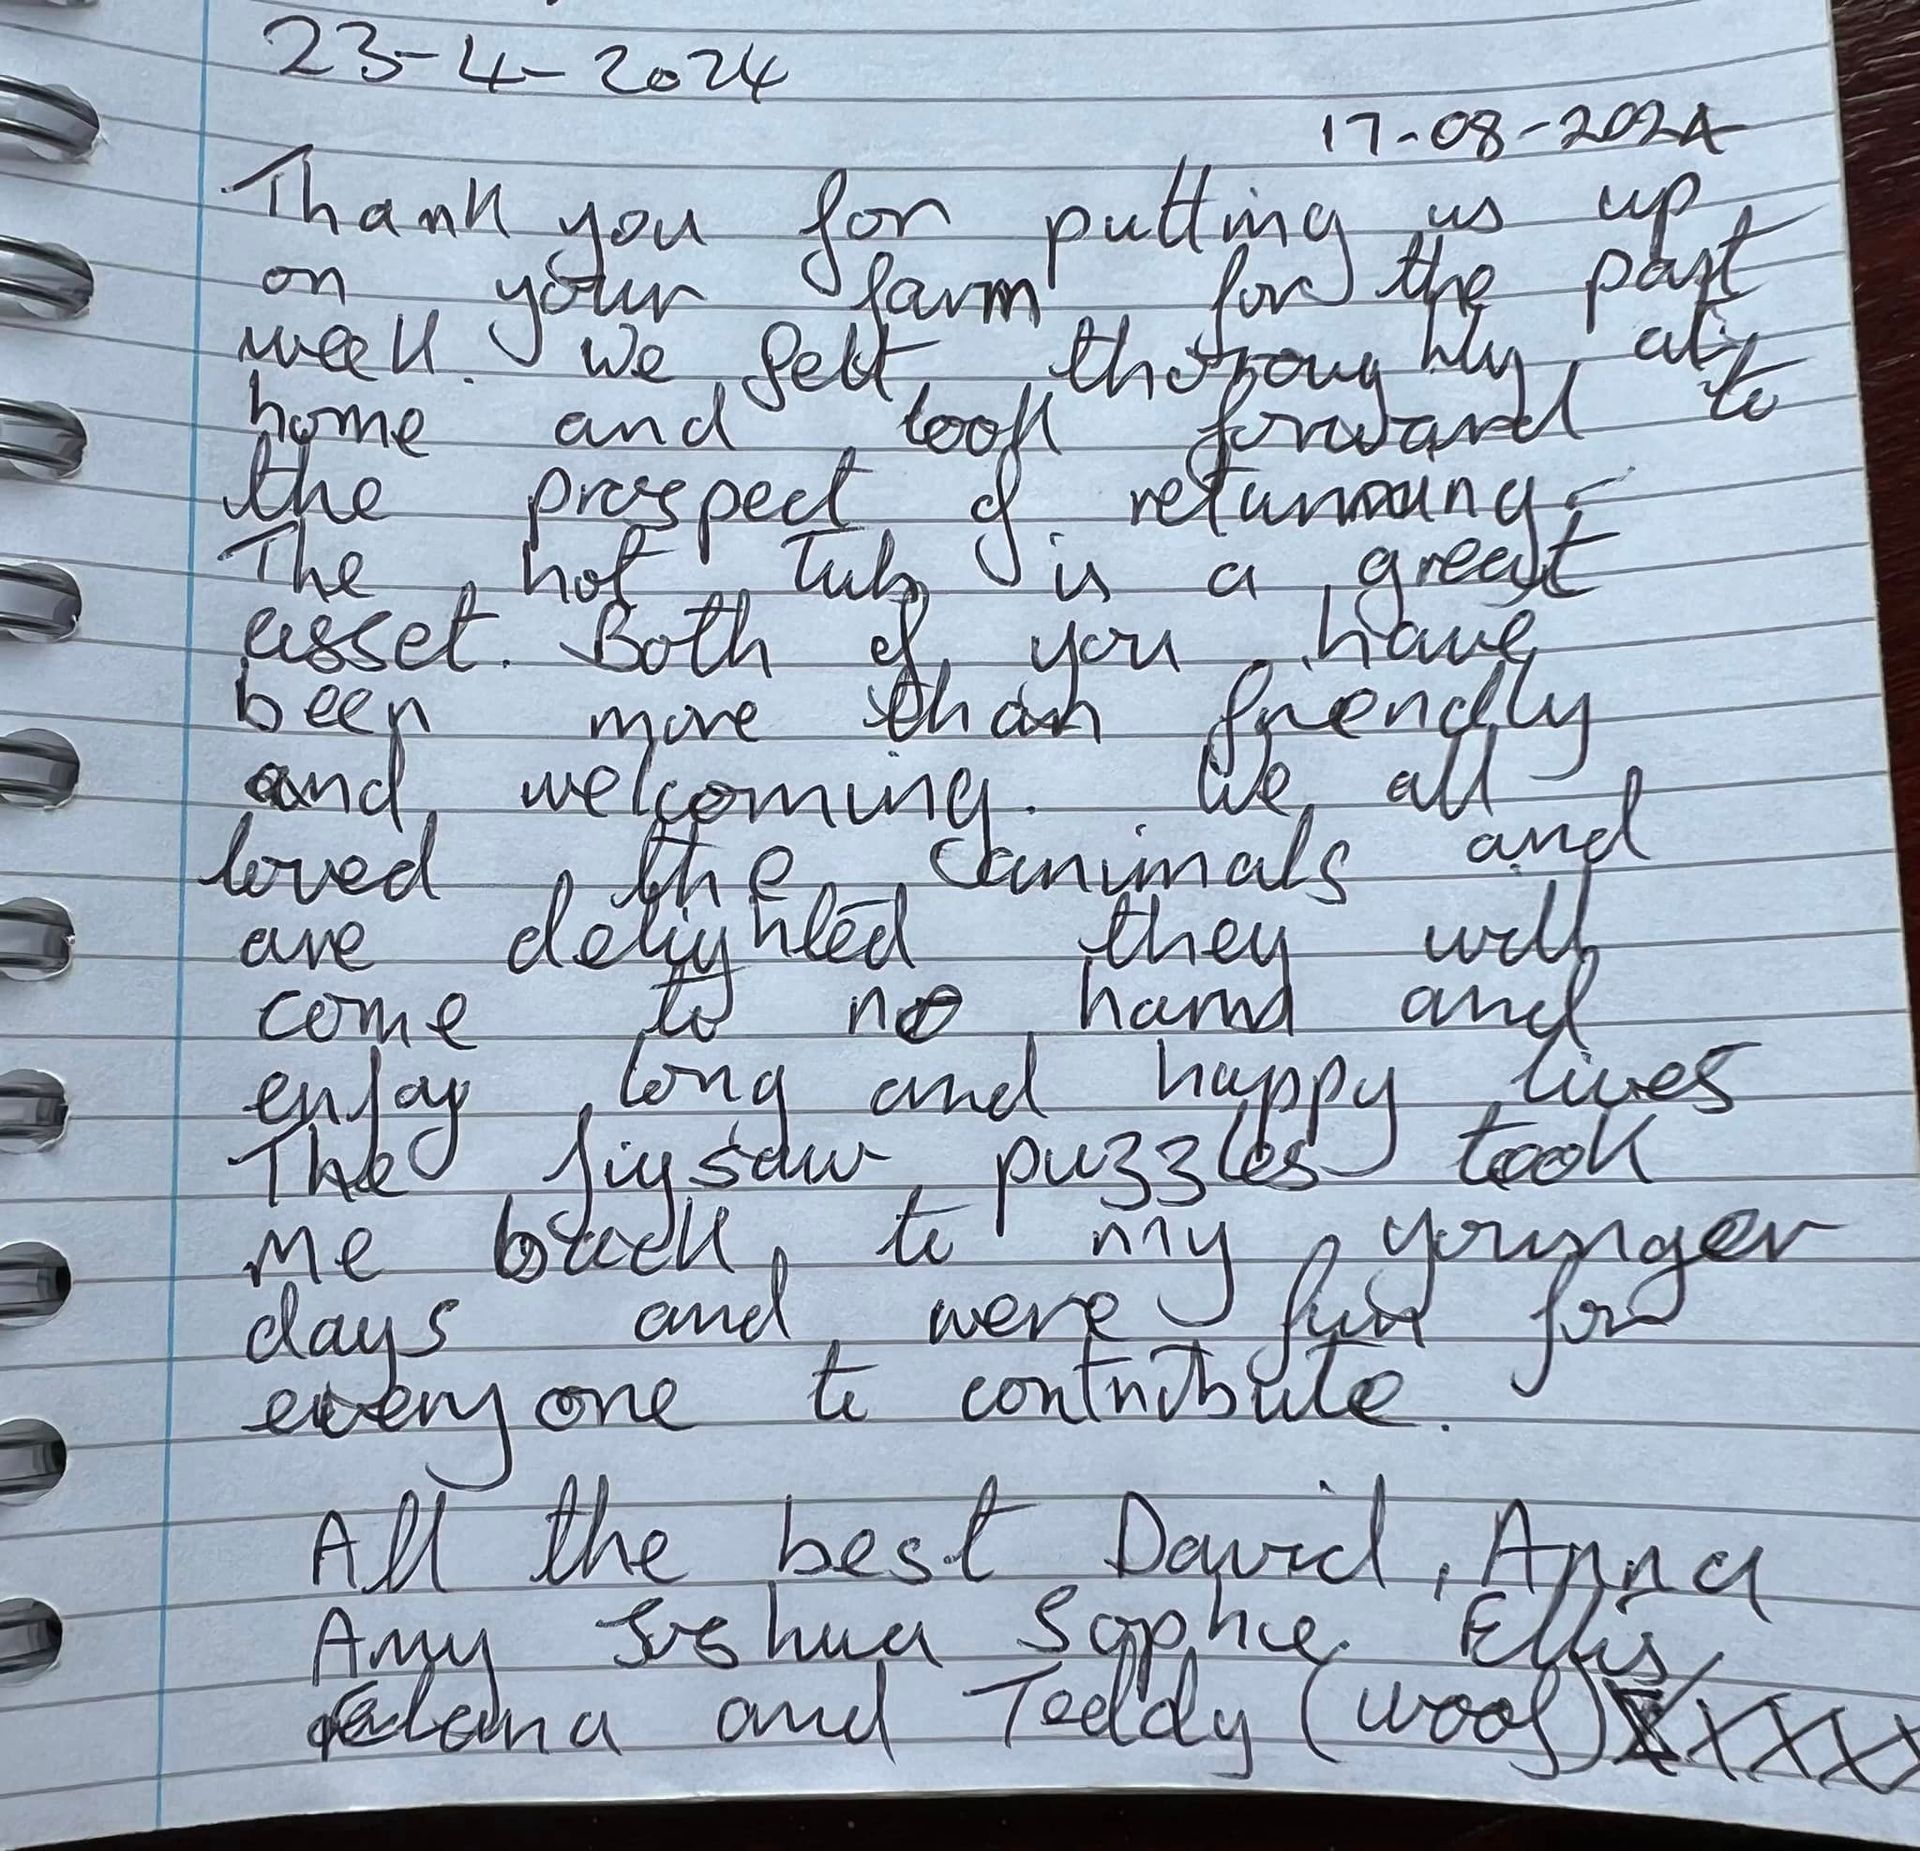 23-4-2024
17-08-2024
Thank you for putting us up
on your farm for the past
week. We felt thoroughly at
home and look forward to
the prospect of returning.
The hot Tub is a great
asset. Both of you have
been more than friendly
and welcoming. We all
loved the animals and
are delighted they will
come to no harm and
enjoy long and happy lives
The jigsaw puzzles took
me back to my younger
days and were fun for
everyone to contribute.
All the best David, Anna
Amy Joshua Sophie. Ellis
and Teddy (woof) XXXX